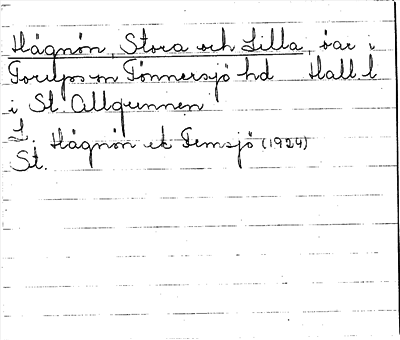 Hågnön, Stora och Lilla, öar i
Torups sn Tönnersjö hd Hall. l
i St. Allgunnen
L. Hågnön ek Femsjö (1924)
St.